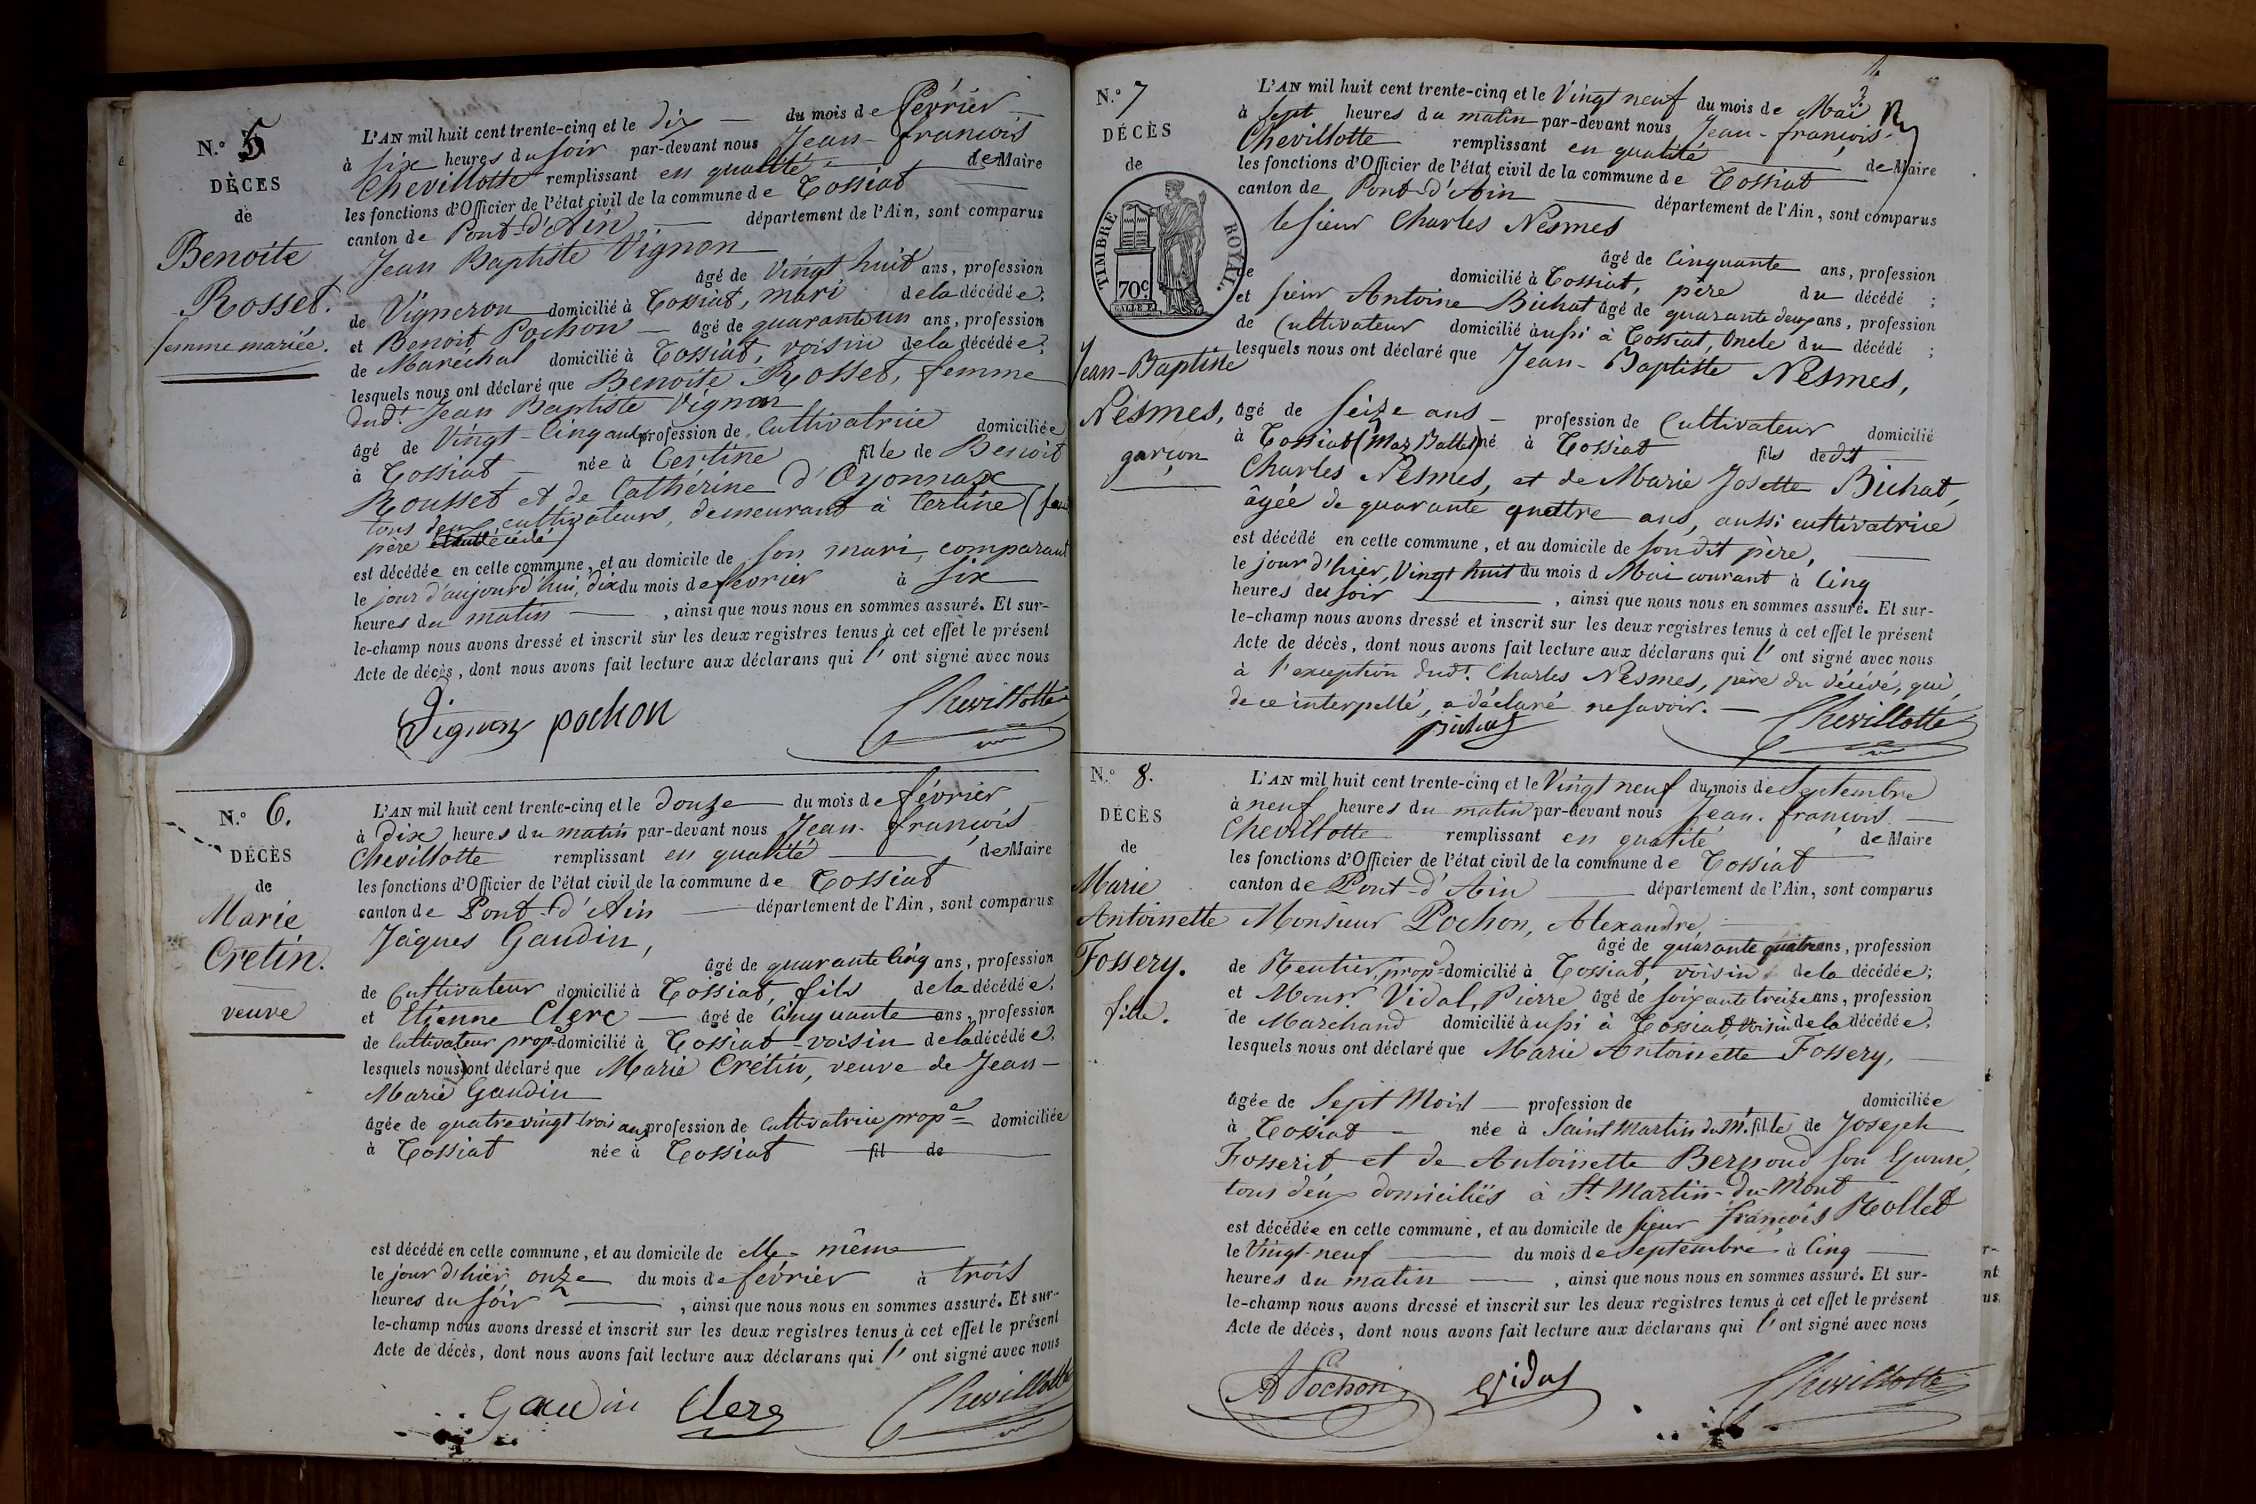 N.º 5
DÉCES
de
Benoite
Rosset.
femme mariée.
L'AN mil huit cent trente-cinq et le dix du mois de février
à six heures du soir par-devant nous Jean-françois
Chevillotte remplissant en qualité de Maire
les fonctions d'Officier de l'état civil de la commune de Tossiat
canton de Pont-d'Ain département de l'Ain, sont comparus
Jean Baptiste Vignon
âgé de Vingt huit ans, profession
de Vigneron domicilié à Tossiat, mari de la décédée;
et Benoit Pochon âgé de quarante un ans, profession
de Maréchal domicilié à Tossiat, voisin de la décédée;
lesquels nous ont déclaré que Benoite Rosset, femme
dud.t Jean Baptiste Vignon
âgé de Vingt-Cinq ans profession de Cultivatrice domiciliée
à Tossiat née à Certine fille de Benoit
Rousset et de Catherine d'Oyonnax
tous deux cultivateurs, demeurant à Certine
père
est décédée en cette commune, et au domicile de son mari, comparant
le jour d'aujourd'hui, dix du mois de février à six
heures du matin, ainsi que nous nous en sommes assuré. Et sur-
le-champ nous avons dressé et inscrit sur les deux registres tenus à cet effet le présent
Acte de décès, dont nous avons fait lecture aux déclarans qui l'ont signé avec nous
Vignon pochon Chevillotte
N.º 6.
DÉCÈS
de
Marie
Cretin.
veuve
L'AN mil huit cent trente-cinq et le douze du mois de février
à dix heures du matin par-devant nous Jean-françois
Chevillotte remplissant en qualité de Maire
les fonctions d'Officier de l'état civil de la commune de Tossiat
canton de Pont-d'Ain département de l'Ain, sont comparus
Jâques Gaudin,
âgé de quarante Cinq ans, profession
de Cultivateur domicilié à Tossiat, fils de la décédée;
et Etienne Clerc âgé de Cinquante ans, profession
de Cultivateur prop.re domicilié à Tossiat voisin de la décédée;
lesquels nous ont déclaré que Marie Crétin, veuve de Jean-
Marie Gaudin
âgée de quatre vingt trois ans profession de Cultivatrice prop.e domiciliée
à Tossiat née à Tossiat fil de
est décédé en cette commune, et au domicile de elle-même
le jour d'hier onze du mois de février à trois
heures du soir, ainsi que nous nous en sommes assuré. Et sur-
le-champ nous avons dressé et inscrit sur les deux registres tenus à cet effet le présent
Acte de décès, dont nous avons fait lecture aux déclarans qui l'ont signé avec nous
Gaudin Clerc Chevillotte
N.º 7
DÉCÈS
de
TIMBRE ROYAL.
70c.
Jean-Baptiste
Nesmes,
garçon
L'AN mil huit cent trente-cinq et le Vingt neuf du mois de Mai
à sept heures du matin par-devant nous Jean-françois
Chevillotte remplissant en qualité de Maire
les fonctions d'Officier de l'état civil de la commune de Tossiat
canton de Pont-d'Ain département de l'Ain, sont comparus
le sieur Charles Nesmes
âgé de Cinquante ans, profession
de domicilié à Tossiat, père du décédé;
et sieur Antoine Bichat âgé de quarante deux ans, profession
de Cultivateur domicilié aussi à Tossiat, Oncle du décédé;
lesquels nous ont déclaré que Jean-Baptiste Nesmes,
âgé de seize ans profession de Cultivateur domicilié
à Tossiat né à Tossiat fils dedit
Charles Nesmes, et de Marie Josette Bichat,
âgée de quarante quattre ans, aussi cultivatrice
est décédé en cette commune, et au domicile de son dit père,
le jour d'hier, Vingt huit du mois d Mai courant à Cinq
heures du soir, ainsi que nous nous en sommes assuré. Et sur-
le-champ nous avons dressé et inscrit sur les deux registres tenus à cet effet le présent
Acte de décès, dont nous avons fait lecture aux déclarans qui l'ont signé avec nous
à l'exception dud.t Charles Nesmes, père du décédé, qui,
de ce interpellé, a déclaré ne savoir.
Bichat Chevillotte
N.º 8.
DÉCÈS
de
Marie
Antoinette
Fossery.
fille.
L'AN mil huit cent trente-cinq et le Vingt neuf du mois de Septembre
à neuf heures du matin par-devant nous Jean-françois
Chevillotte remplissant en qualité de Maire
les fonctions d'Officier de l'état civil de la commune de Tossiat
canton de Pont-d'Ain département de l'Ain, sont comparus
Monsieur Pochon, Alexandre,
âgé de quarante quatre ans, profession
de Rentier, prop.re domicilié à Tossiat, voisin de la décédée;
et Monsr. Vidal, Pierre âgé de soixante treize ans, profession
de Marchand domicilié aussi à Tossiat, voisin de la décédée,
lesquels nous ont déclaré que Marie Antoinette Fossery,
âgée de Sept Mois profession de domiciliée
à Tossiat née à Saint Martin du Mt. fille de Joseph
Fosserit et de Antoinette Bernoud son Epouse,
tous deux domiciliés à St. Martin-du-Mont
est décédée en cette commune, et au domicile de sieur françois Rollet
le Vingt-neuf du mois de Septembre à Cinq
heures du matin, ainsi que nous nous en sommes assuré. Et sur-
le-champ nous avons dressé et inscrit sur les deux registres tenus à cet effet le présent
Acte de décès, dont nous avons fait lecture aux déclarans qui l'ont signé avec nous
A Pochon Vidal Chevillotte